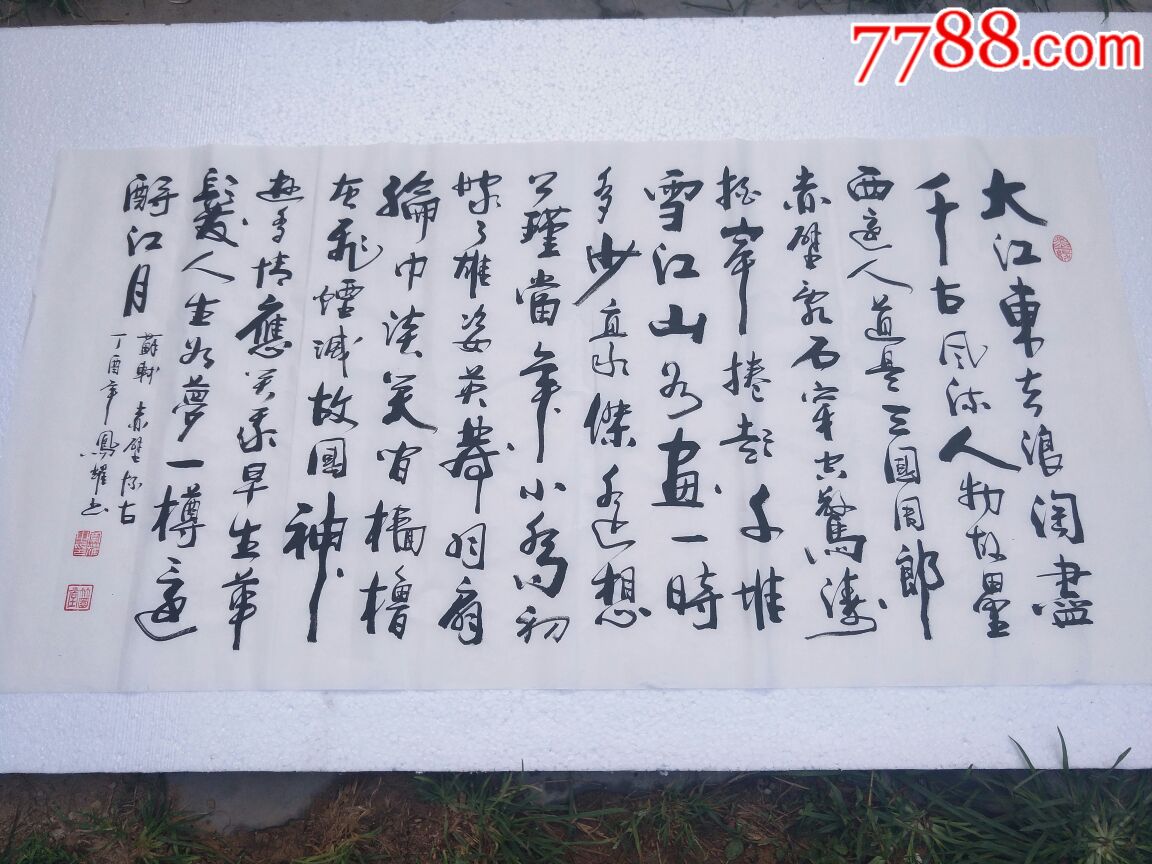 7788.com
大江東去浪淘盡
千古風流人物故壘
西邊人道是三國周郎
赤壁亂石穿空驚濤
拍岸捲起千堆
雪江山如畫一時
多少豪傑遙想
公瑾當年小喬初
嫁了雄姿英發羽扇
綸巾談笑間檣櫓
灰飛煙滅故國神
遊多情應笑我早生華
髮人生如夢一樽還
酹江月
蘇軾 赤壁懷古
丁酉年鳳耀書